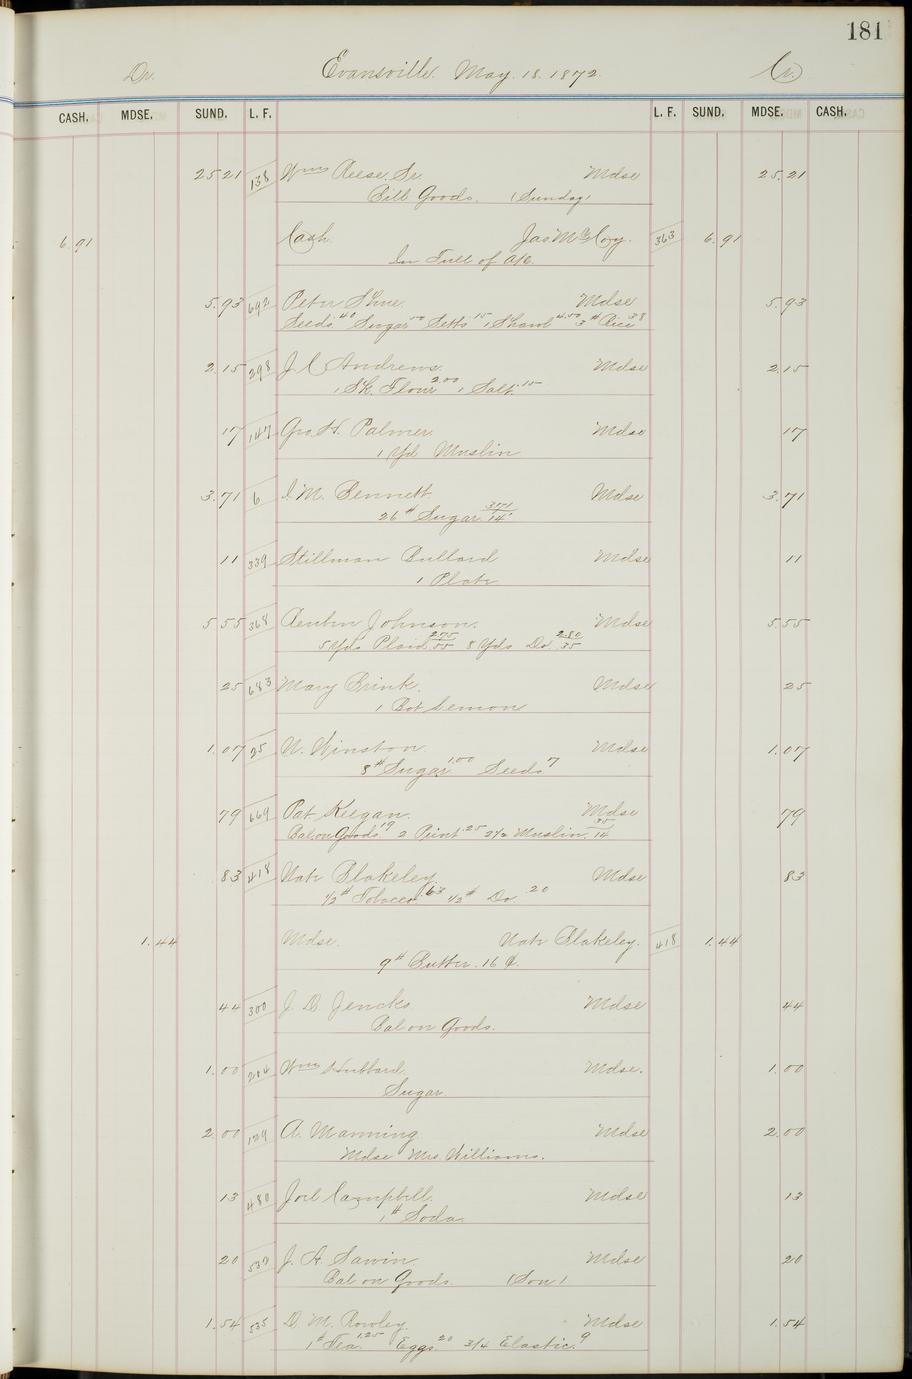 181
Dr. Evansville. May. 18. 1872. Cr.
CASH. MDSE. SUND. L. F. L. F. SUND. MDSE. CASH.
25 21 138 Wm Reese. Sr. Mdse 25.21
Bill Goods. (Sunday)
6.91 Cash Jas McCoy. 363 6.91
In Full of A/c.
5.93 692 Peter Shue. Mdse 5.93
Seeds 40 Sugar 50 Setts 15 1 Shawl 4.50 3# Rice 38
2.15 298 J. C Andrews. Mdse 2.15
1 Sk. Flour 2.00 1 Salt. 15
17 147 Geo. H. Palmer. Mdse 17
1 Yd Muslin
3.71 6 I. M. Bennett. Mdse 3.71
26# Sugar 371/14
11 339 Stillman Bullard Mdse 11
1 Plate
5.55 368 Reuben Johnson. Mdse 5.55
5 Yds Plaid 275/55 8 Yds Do. 280/35
25 683 Mary Brink. Mdse 25
1 Bot Lemon
1.07 25 N. Winston Mdse 1.07
8# Sugar 1.00 Seeds 7
79 669 Pat. Keegan. Mdse 79
Bal on Goods 19 2 Print 25 2½ Muslin 35/14
83 418 Nate Blakeley Mdse 83
½# Tobacco 63 ½# Do 20
1.44 Mdse. Nate Blakeley. 418 1.44
9# Butter. 16 ¢.
44 300 J. D. Jencks Mdse 44
Bal on Goods.
1.00 204 Wm Hubbard Mdse. 1.00
Sugar
2.00 129 A. Manning Mdse 2.00
Mdse Mrs. Williams.
13 480 Joel Campbell. Mdse 13
1# Soda.
20 537 J. A. Sawin Mdse 20
Bal on Goods. (Son)
1.54 535 D. M. Rowley. Mdse 1.54
1# Tea. 1.25 Eggs. 20 3/4 Elastic. 9